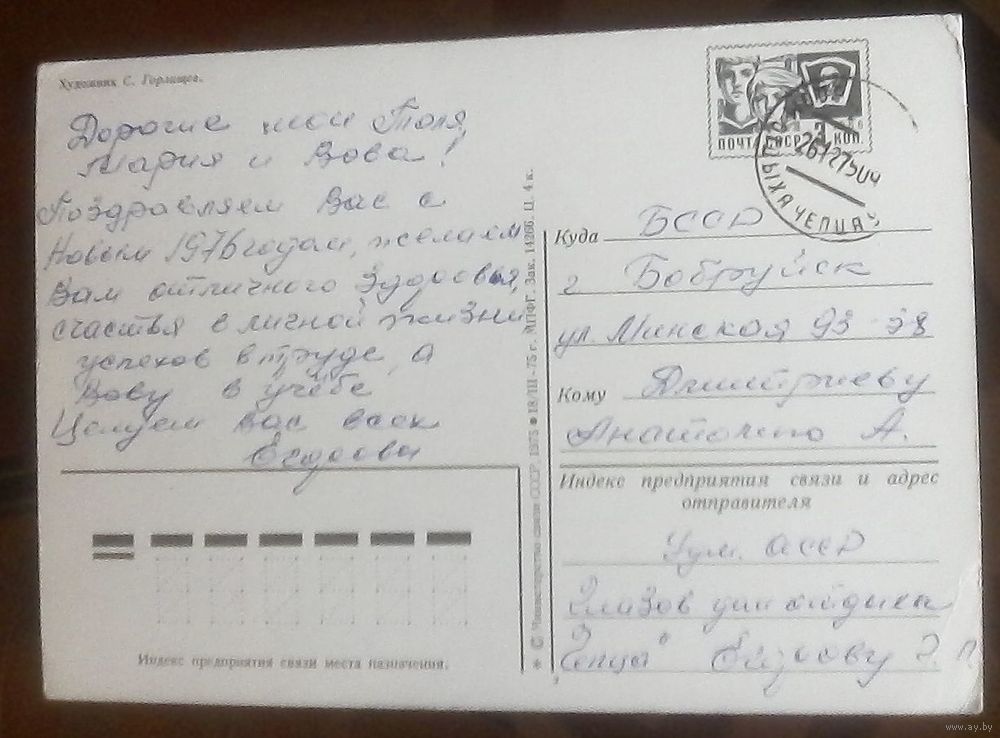 Художник С. Горлищев.
Дорогие мои Толя,
Мария и Вова!
Поздравляем Вас с
Новым 1976 годом, желаем
Вам отличного здоровья,
счастья в личной жизни
успехов в труде, а
Вову в учёбе
Целуем Вас всех
ПОЧТА СССР 3 КОП.
261275
ЧЕПЦА
Куда БССР
г Бобруйск
ул. Минская 93-38
Кому Дмитриеву
Анатолию А.
Индекс предприятия связи и адрес
отправителя
Удм. АССР
Глазов дом отдыха
"Чепца"
Индекс предприятия связи места назначения.
© Министерство связи СССР, 1975 ● 18/III-75 г. МПФГ. Зак. 14266. Ц. 4 к.
www.ay.by